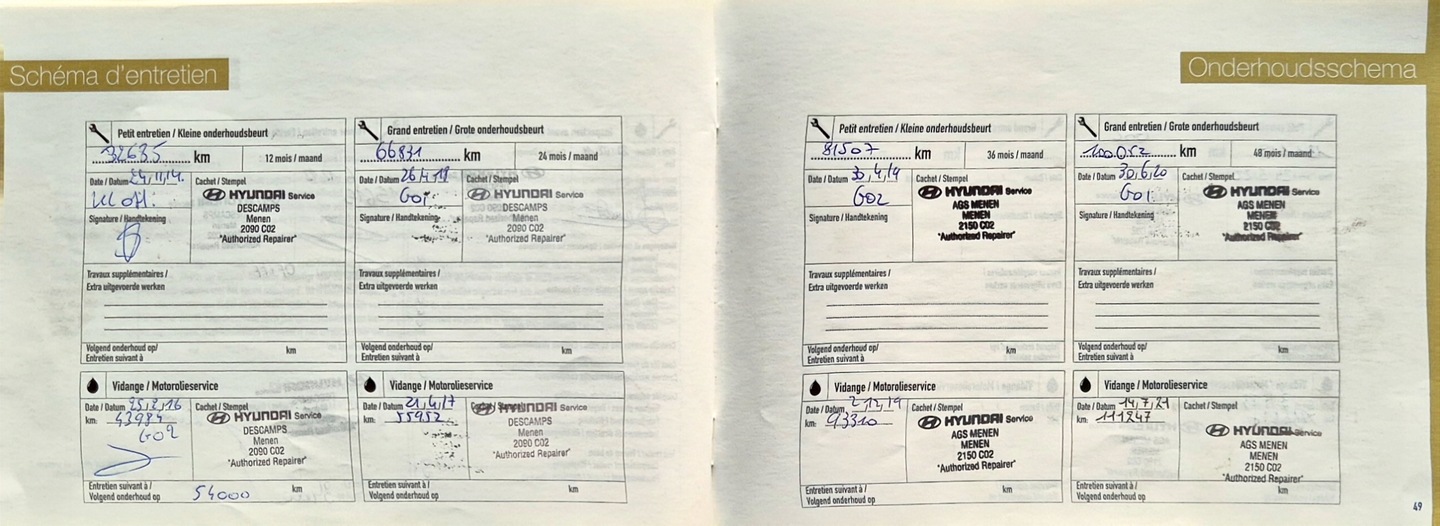 Schéma d'entretien
Petit entretien / Kleine onderhoudsbeurt
32635 km 12 mois / maand
Date / Datum 24,11,14.
Cachet / Stempel
HYUNDAI Service
DESCAMPS
Menen
2090 C02
"Authorized Repairer"
Signature / Handtekening
Travaux supplémentaires /
Extra uitgevoerde werken
Volgend onderhoud op/
Entretien suivant à km
Grand entretien / Grote onderhoudsbeurt
66831 km 24 mois / maand
Date / Datum 26.4.18
Cachet / Stempel
G01
HYUNDAI Service
DESCAMPS
Menen
2090 C02
"Authorized Repairer"
Signature / Handtekening
Travaux supplémentaires /
Extra uitgevoerde werken
Volgend onderhoud op/
Entretien suivant à km
Vidange / Motorolieservice
Date / Datum 25,2,16
km: 43984
G02
Cachet / Stempel
HYUNDAI Service
DESCAMPS
Menen
2090 C02
"Authorized Repairer"
Entretien suivant à /
Volgend onderhoud op 54000 km
Vidange / Motorolieservice
Date / Datum 21,4,17
km: 55952
HYUNDAI Service
DESCAMPS
Menen
2090 C02
"Authorized Repairer"
Entretien suivant à /
Volgend onderhoud op km
Onderhoudsschema
Petit entretien / Kleine onderhoudsbeurt
81507 km 36 mois / maand
Date / Datum 30,4,19
G02
Cachet / Stempel
HYUNDAI Service
AGS MENEN
MENEN
2150 C02
"Authorized Repairer"
Signature / Handtekening
Travaux supplémentaires /
Extra uitgevoerde werken
Volgend onderhoud op/
Entretien suivant à km
Grand entretien / Grote onderhoudsbeurt
100.052 km 48 mois / maand
Date / Datum 30,6,20
G01
Cachet / Stempel
HYUNDAI Service
AGS MENEN
MENEN
2150 C02
"Authorized Repairer"
Signature / Handtekening
Travaux supplémentaires /
Extra uitgevoerde werken
Volgend onderhoud op/
Entretien suivant à km
Vidange / Motorolieservice
Date / Datum 2,12,19
km: 93310
Cachet / Stempel
HYUNDAI Service
AGS MENEN
MENEN
2150 C02
"Authorized Repairer"
Entretien suivant à /
Volgend onderhoud op km
Vidange / Motorolieservice
Date / Datum 14,7,21
km: 111247
Cachet / Stempel
HYUNDAI Service
AGS MENEN
MENEN
2150 C02
"Authorized Repairer"
Entretien suivant à /
Volgend onderhoud op km
49